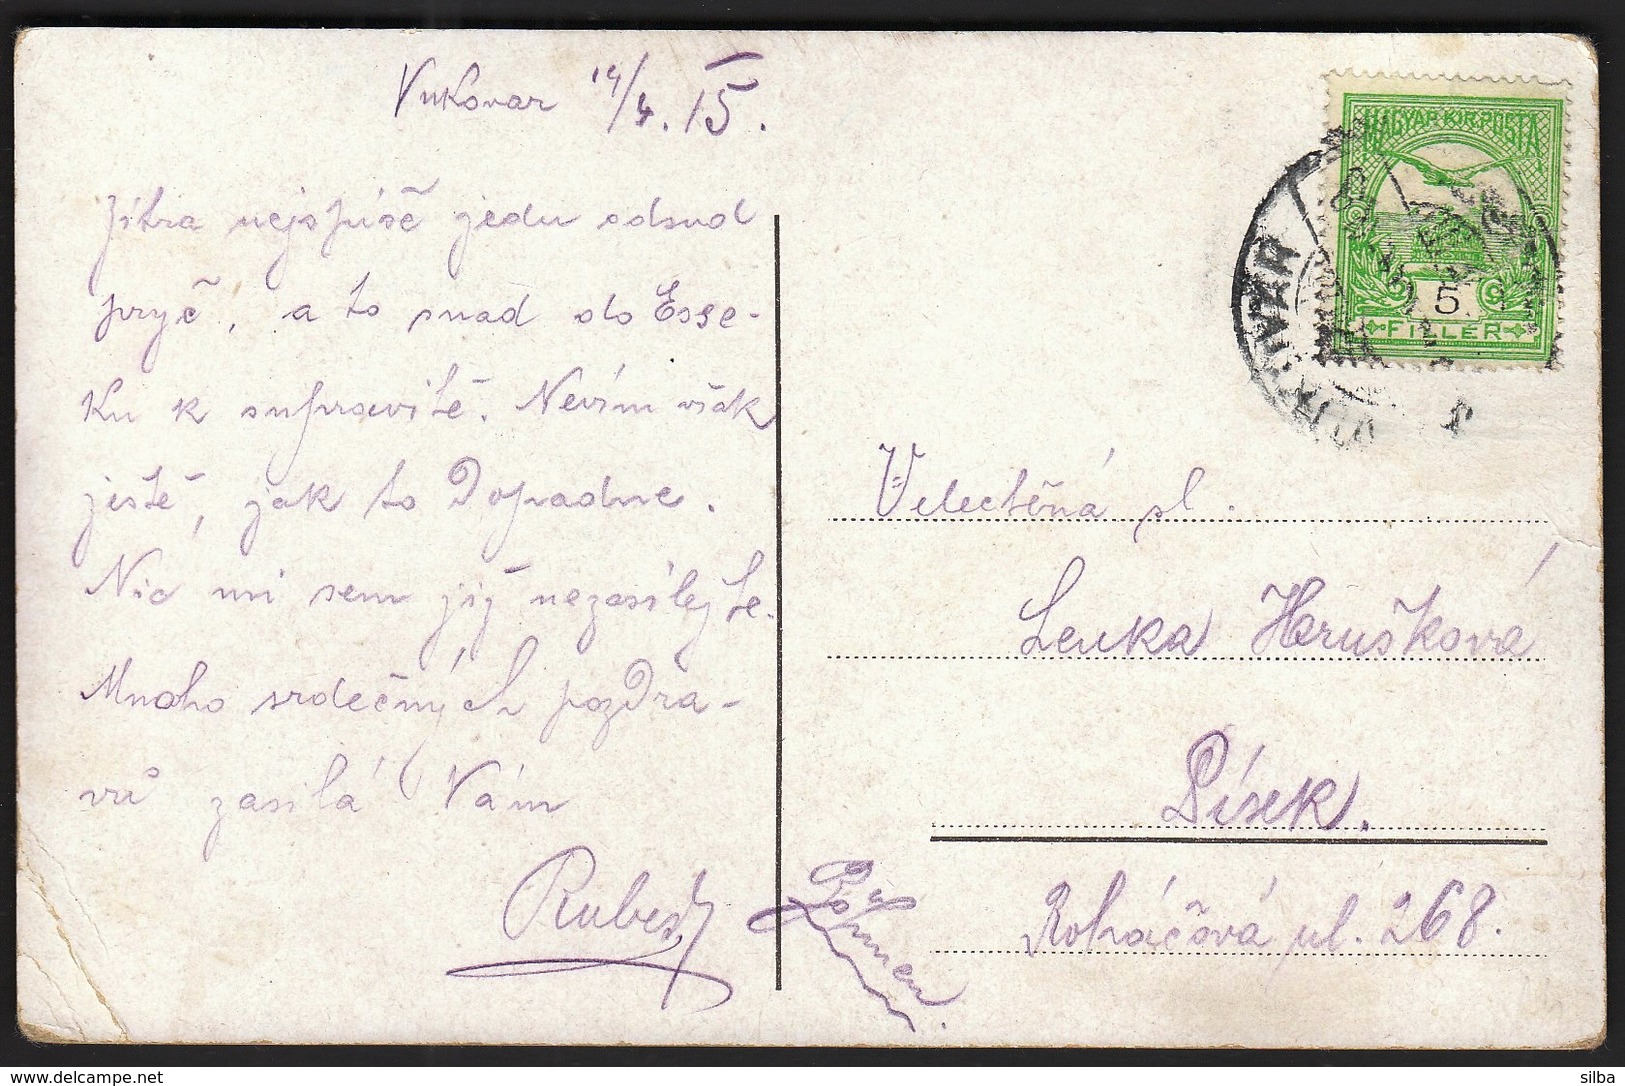 Vukovar 14/4. 15.
Zítra nejspíše jedu odsud
pryč, a to snad do Esse-
ku k supravitě. Nevím však
ještě, jak to Dopadne.
Nic mi sem již nezasílejte.
Mnoho srdečných pozdra-
vů zasílá Vám
MAGYAR KIR. POSTA
5
FILLER
Velectěná sl.
Lenka Herušková
Písek.
Böhmen.
Roháčová ul. 268.
silba